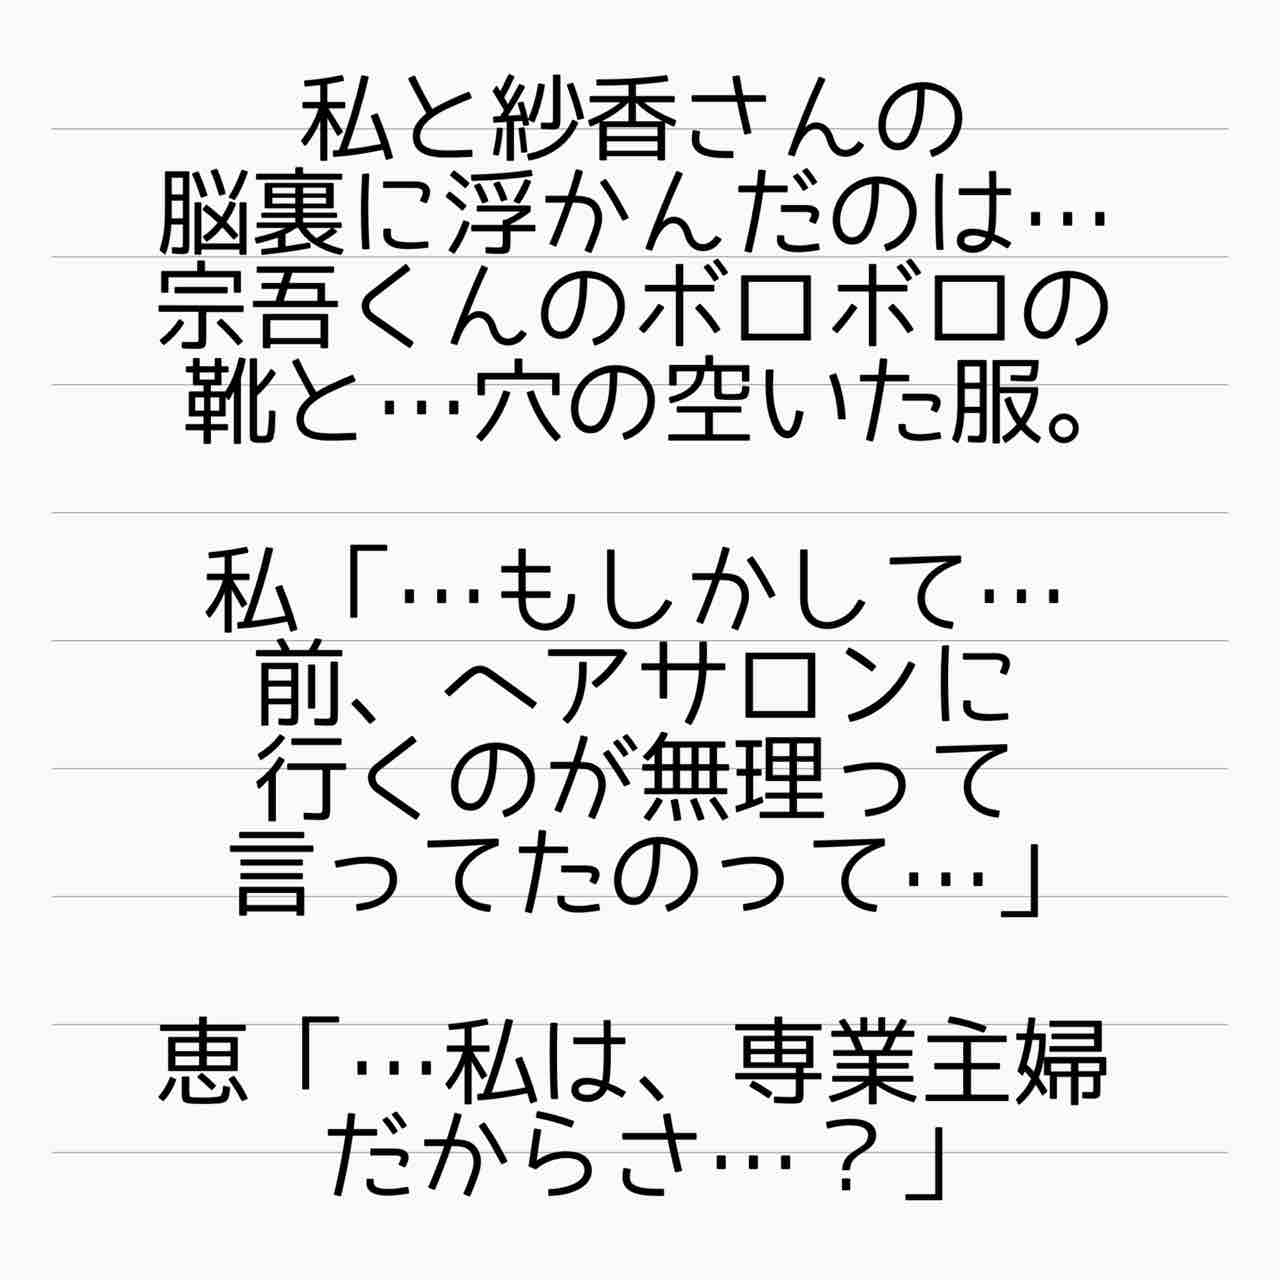 私と紗香さんの
脳裏に浮かんだのは…
宗吾くんのボロボロの
靴と…穴の空いた服。
私「…もしかして…
前、ヘアサロンに
行くのが無理って
言ってたのって…」
恵「…私は、専業主婦
だからさ…？」